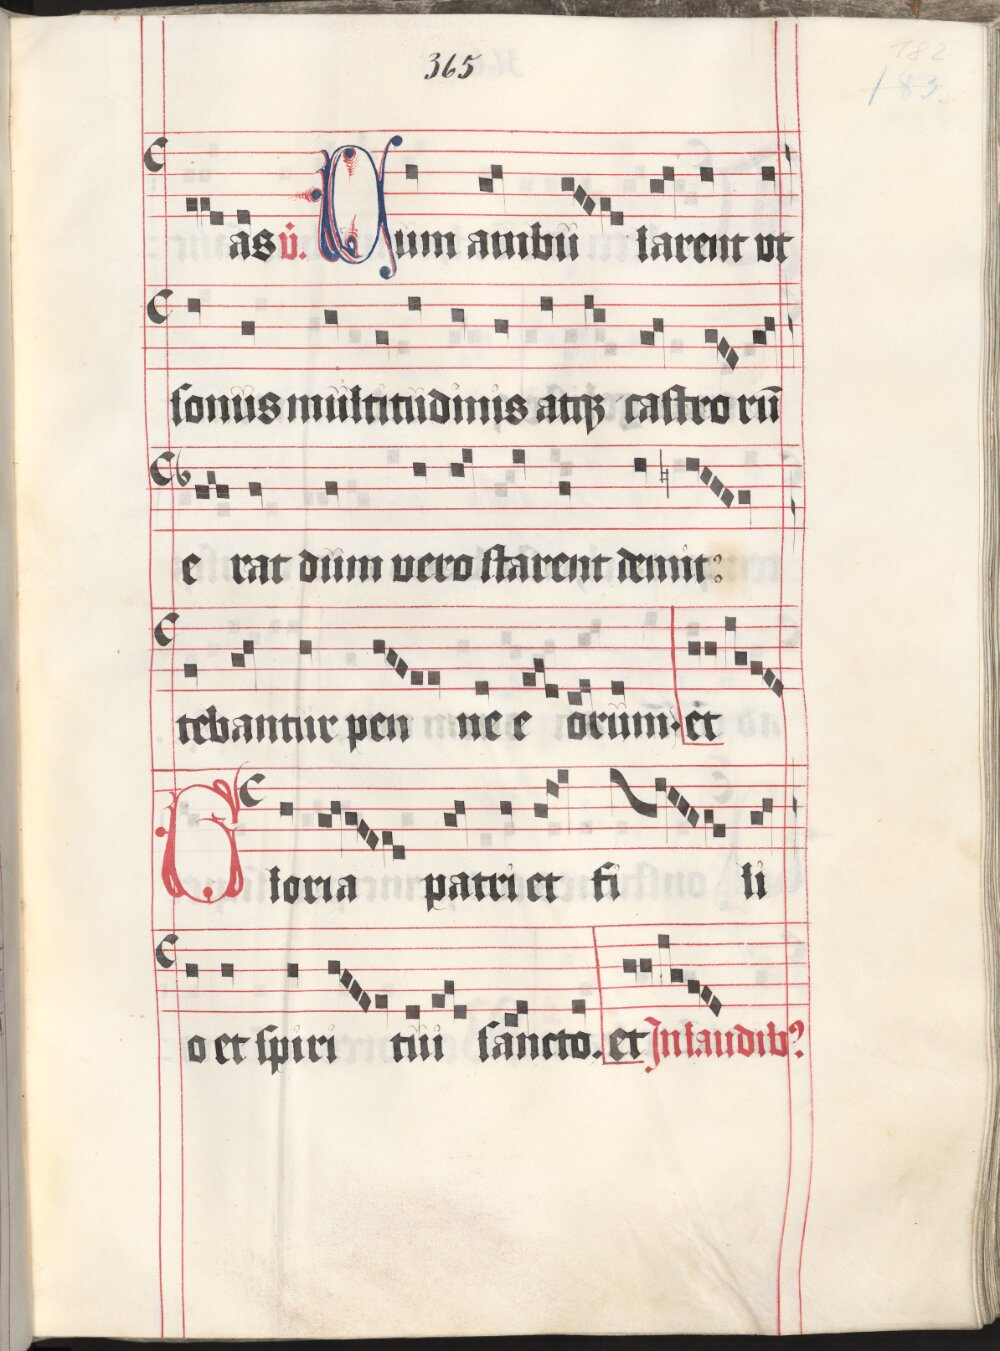 365
182
183.
as v̇. Cum ambulˉarent vt
sonus multitudinis atqꝫ castrorū
e rat dum vero starent demit:
tebantur pen ne e orum. et
Gloria patri et fi li
o et spiri tui sancto. et In laudibꝰ